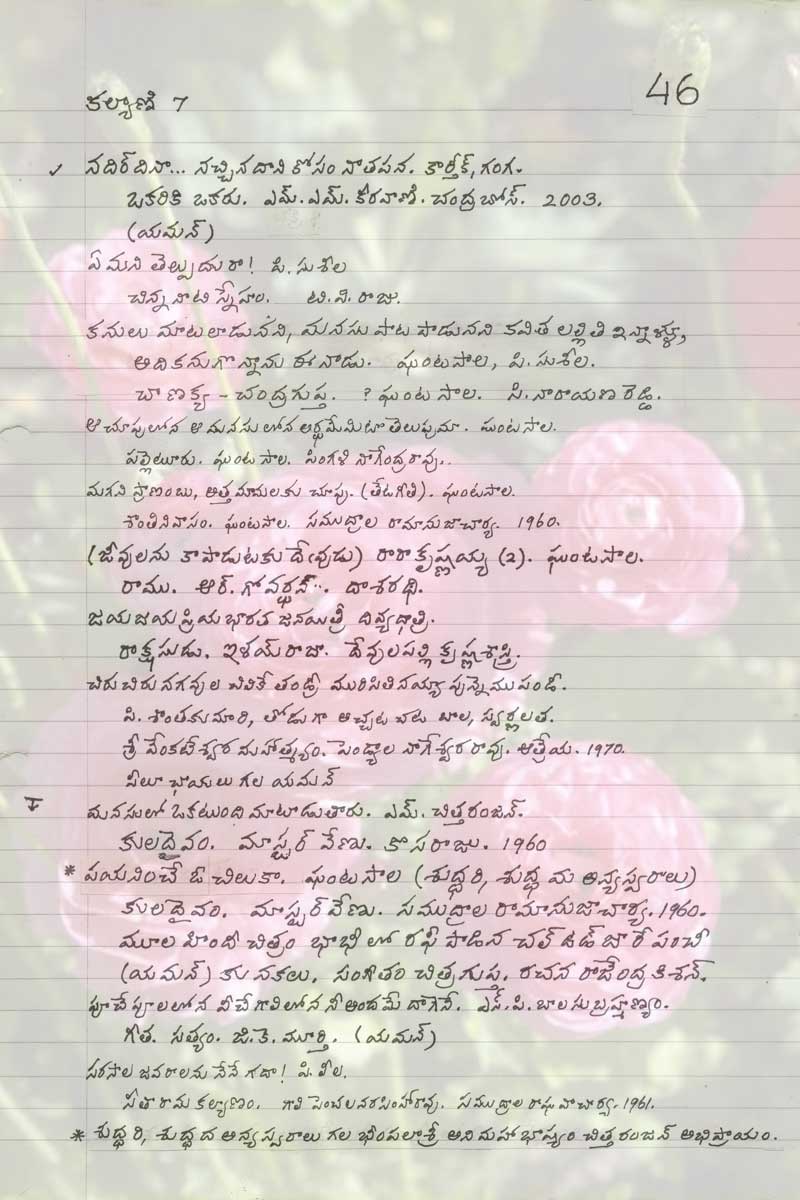 46
కల్యాణి 7
✓ నదిర్ దినా... నచ్చినదాని కోసం నాతపన. కార్తీక్, గంగ.
ఒకరికి ఒకరు. ఎమ్.ఎమ్. కీరవాణి. చంద్రబోస్. 2003.
(యమన్)
ఏమని తెల్పుదురా! పి. సుశీల
చిన్ననాటి స్నేహం. టి.వి. రాజు.
కనులు మాటలాడునని, మనసు పాట పాడునని కవిత లల్లితి ఇన్నాళ్ళూ,
అది కనుగొన్నాను ఈనాడు. ఘంటసాల, పి. సుశీల.
చాణక్య - చంద్రగుప్త. ? ఘంటసాల. సి. నారాయణరెడ్డి.
ఆ చూపులోన ఆ మనసులోన అర్థమేమిటో తెలుపుమా. ఘంటసాల.
పల్లెటూరు. ఘంటసాల. పింగళి నాగేంద్రరావు..
మగని ప్రాణంబు, అత్తమామలకు చూపు. (తేటగీతి). ఘంటసాల.
శాంతినివాసం. ఘంటసాల. సముద్రాల రామానుజాచార్య. 1960.
(జీవులను కాపాడుటకు దేవుడు) రారా కృష్ణయ్య (2). ఘంటసాల.
రాము. ఆర్. గోవర్ధన్. దాశరథి.
జయ జయ ప్రియ భారత జనయిత్రీ దివ్యధాత్రి.
రాక్షసుడు. ఇళయ్ రాజా. దేవులపల్లి కృష్ణశాస్త్రి.
చిరుచిరు నగవుల చిలికే తండ్రీ మురిసితినయ్యా పున్నెము పండీ.
పి. శాంతకుమారి, తోడుగా అచ్చటచట బాల, స్వర్ణలత.
శ్రీ వేంకటేశ్వర మహాత్మ్యం. పెండ్యాల నాగేశ్వరరావు. ఆత్రేయ. 1970.
పీలూ ఛాయలు గల యమన్
మనసులో ఒకటుంది మాటాడుతారు. ఎమ్. చిత్తరంజన్.
కులదైవం. మాస్టర్ వేణు. కొసరాజు. 1960
* పయనించే ఓ చిలుకా. ఘంటసాల (శుద్ధ రి, శుద్ధ మ అన్యస్వరాలు)
కులదైవం. మాస్టర్ వేణు. సముద్రాల రామానుజాచార్య. 1960.
మూల హిందీ చిత్రం భాభీ లో రఫీ పాడిన చల్ ఉడ్ జారే పంచీ
(యమన్) కు నకలు. సంగీతం చిత్రగుప్త. రచన రాజేంద్ర కిశన్.
పూచే పూలలోన వీచే గాలిలోన నీ అందమే దాగెనే. ఎస్.పి. బాలసుబ్రహ్మణ్యం.
గీత. సత్యం. జి.కె. మూర్తి. (యమన్)
సరసాల జవరాలను నేనే గదా! పి. లీల.
సీతారామ కల్యాణం. గాలి పెంచలనరసింహారావు. సముద్రాల రాఘవాచార్య. 1961.
* శుద్ధ రి, శుద్ధ ద అన్యస్వరాలు గల భీంపలాశ్రీ అని మహాభాష్యం చిత్తరంజన్ అభిప్రాయం.